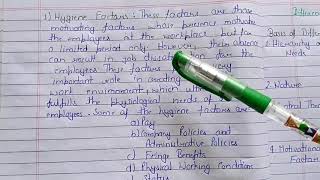 1) Hygiene Factors: These factors are those
motivating factors whose presence motivate
the employees at the workplace but for
a limited period only. However, their absence
can result in job for the
employees. Thus factors very
important role in creating
work environment, which
fulfills the physiological needs of
employees. Some of the hygiene factors are
a) Pay
b) Company Policies and
Administrative Policies
c) Fringe Benefits
d) Physical Working Conditions
Status
Basis of Differ
1. Hierarchy of
Needs
2. Nature
4. Motivational
Factors